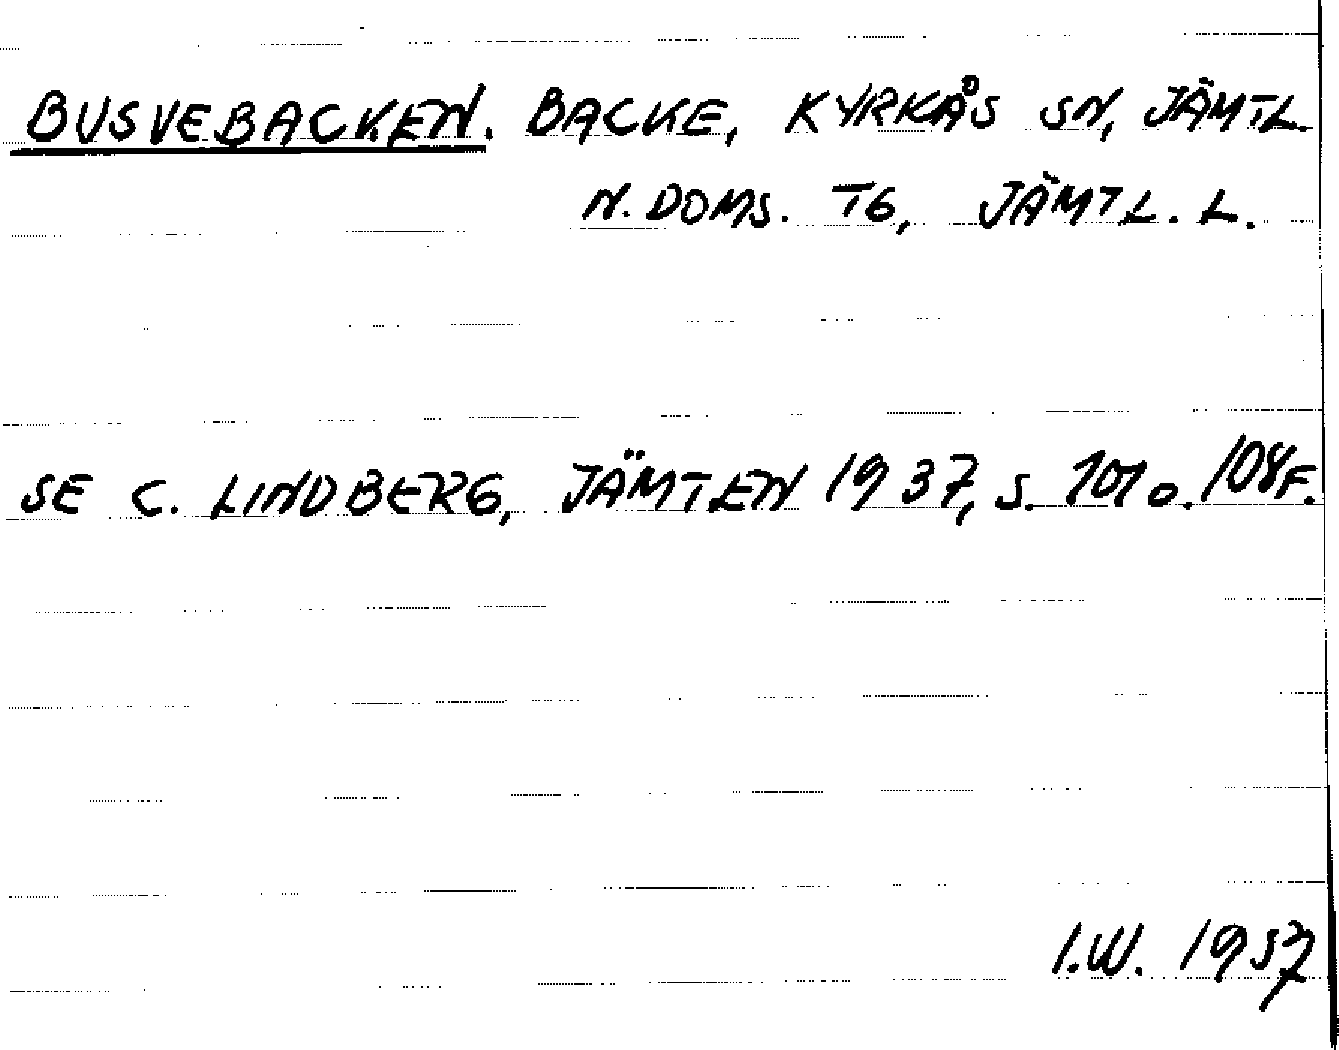 BUSVEBACKEN. BACKE, KYRKÅS SN, JÄMTL.
N. DOMS. TG, JÄMTL. L.
SE C. LINDBERG, JÄMTEN 1937, S. 101 o. 108F.
I.W. 1957